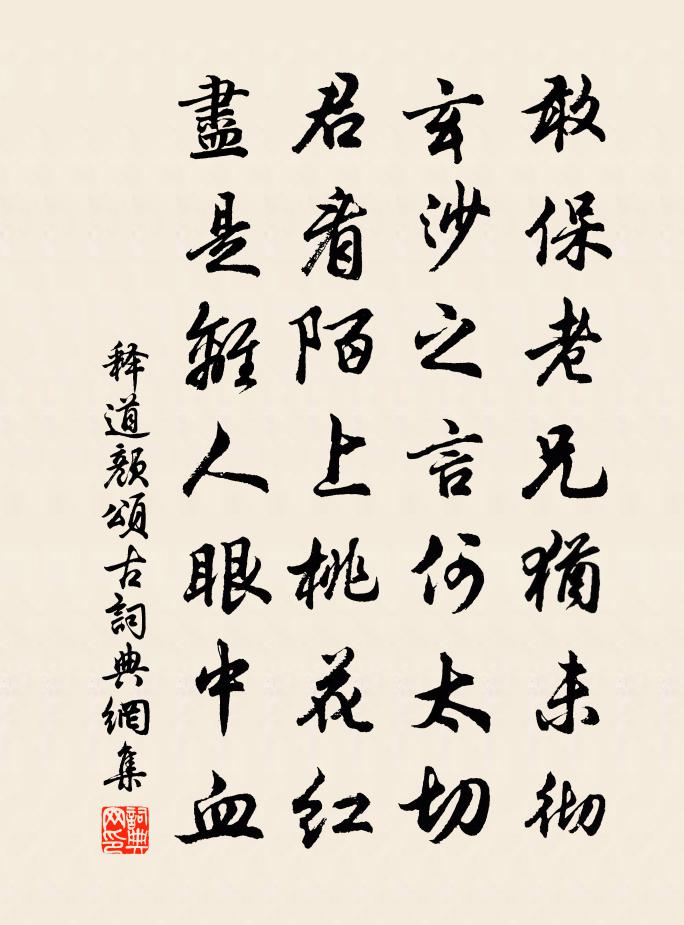 敢保老兄猶未徹
玄沙之言何太切
君看陌上桃花紅
盡是離人眼中血
释道颜頌古詞典網集
詞典网印